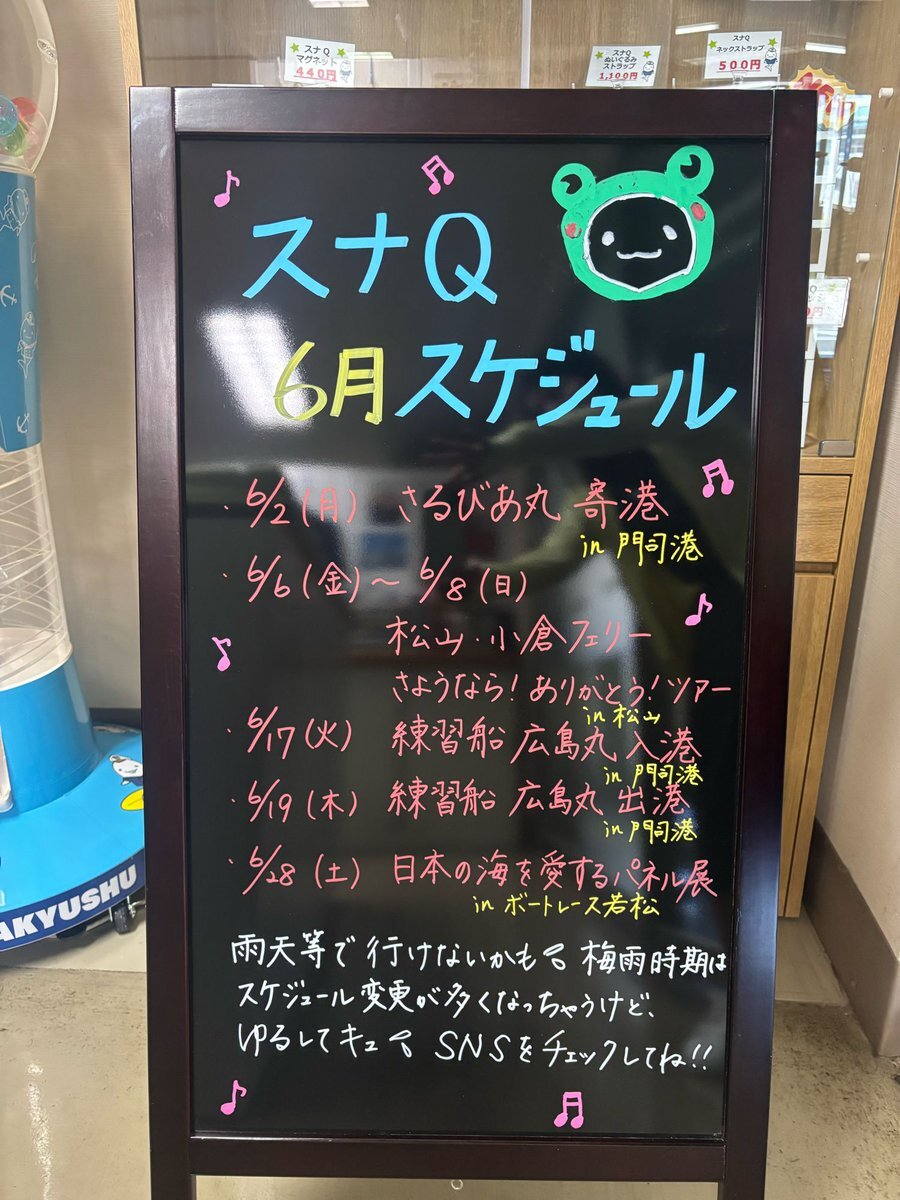 スナQ
マグネット
440円
スナQ
ぬいぐるみ
ストラップ
1,100円
スナQ
ネックストラップ
500円
スナQ
6月スケジュール
・6/2(月) さるびあ丸 寄港
in 門司港
・6/6(金)～6/8(日)
松山・小倉フェリー
さようなら!ありがとう!ツアー
in 松山
・6/17(火) 練習船 広島丸 入港
in 門司港
・6/19(木) 練習船 広島丸 出港
in 門司港
・6/28(土) 日本の海を愛するパネル展
in ボートレース若松
雨天等で行けないかも 梅雨時期は
スケジュール変更が多くなっちゃうけど、
ゆるしてキュ SNSをチェックしてね!!
AKYUSHU